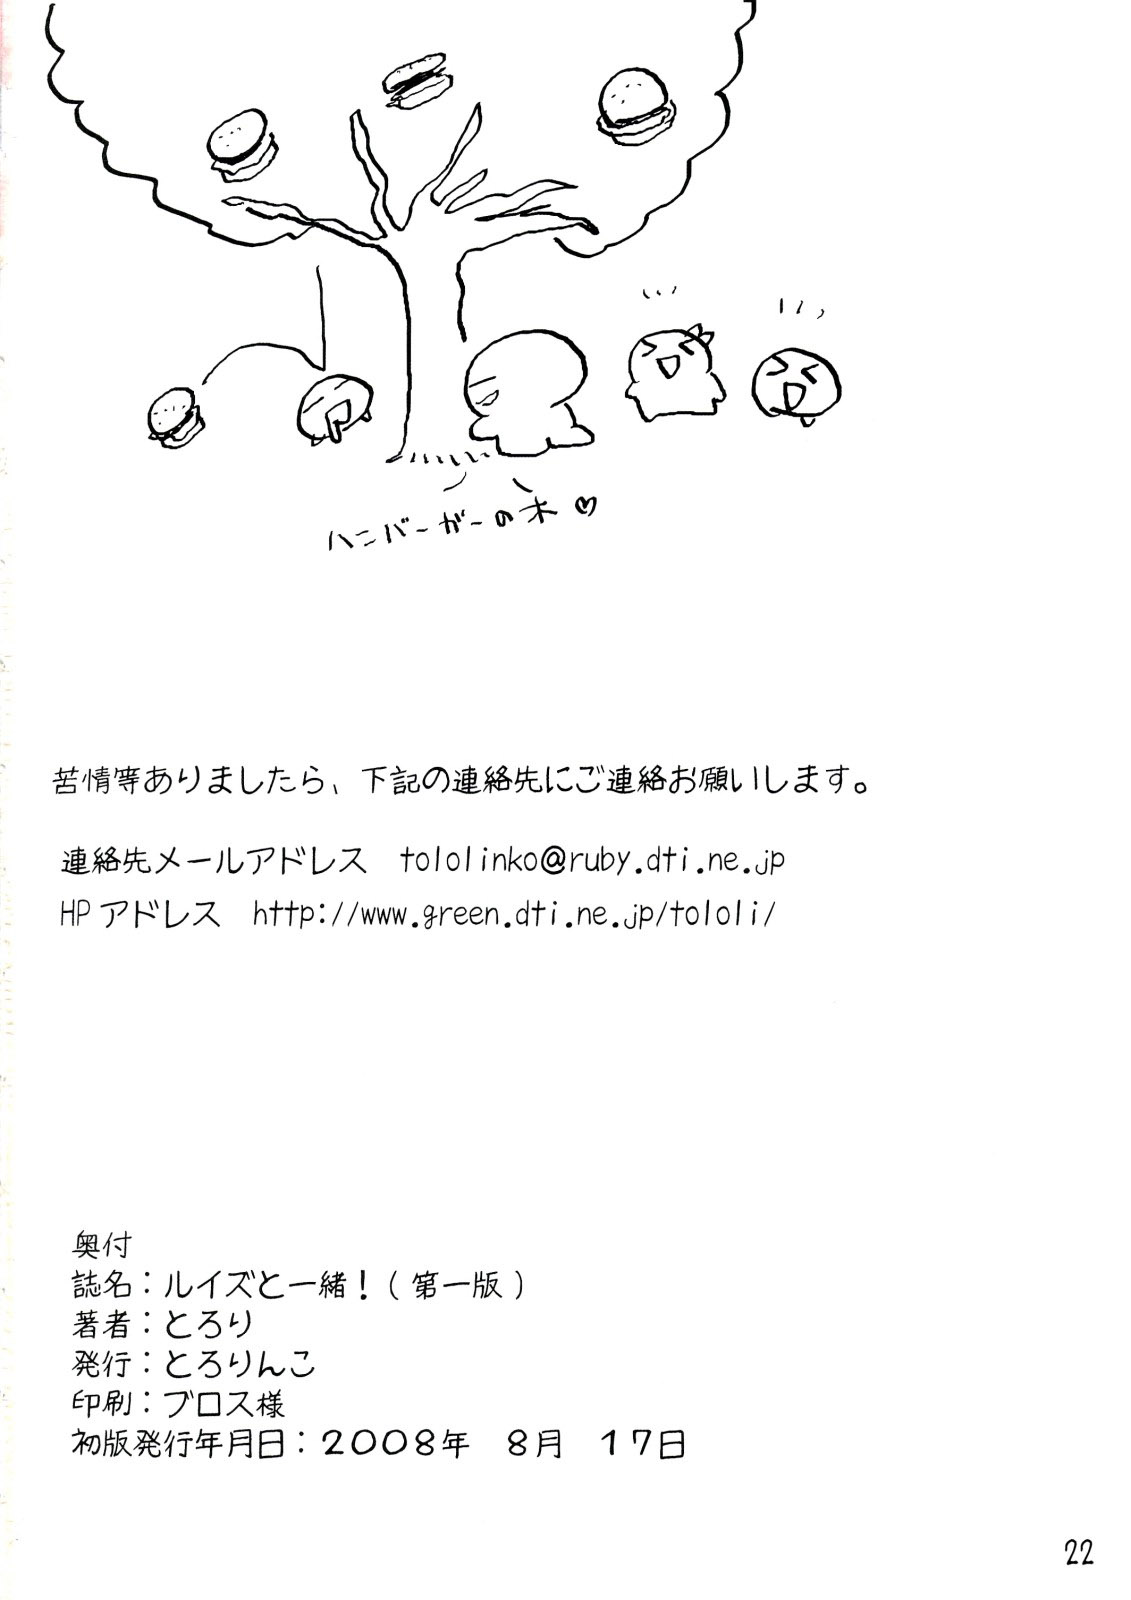 ハンバーガーの木♡
苦情等ありましたら、下記の連絡先にご連絡お願いします。
連絡先メールアドレス　tololinko@ruby.dti.ne.jp
HPアドレス　http://www.green.dti.ne.jp/tololi/
奥付
誌名：ルイズと一緒！(第一版)
著者：とろり
発行：とろりんこ
印刷：ブロス様
初版発行年月日：2008年　8月　17日
22